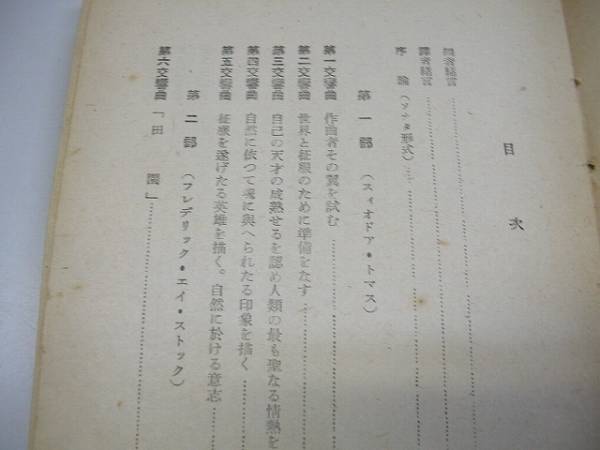 目次
譯者緒言
序論(ソナタ形式)
第一部(スィオドア・トマス)
第一交響曲 作曲者その翼を試む
第二交響曲 世界と征服のために準備をたす
第三交響曲 自己の天才の成熟せるを認め人類の最も聖なる情熱を
第四交響曲 自然に依つて魂に與へられたる印象を描く
第五交響曲 征服を遂げたる英雄を描く。自然に於ける意志
第二部(フレデリック・エイ・ストック)
第六交響曲「田園」